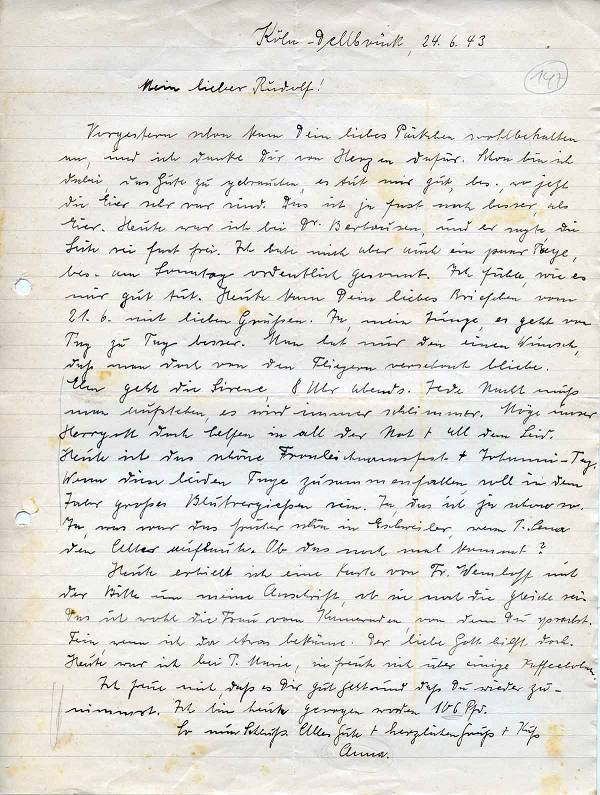 Köln-Dellbrück, 24.6.43
147
Mein lieber Rudolf!
Vorgestern schon kam Dein liebes Päckchen wohlbehalten
an, und ich danke Dir von Herzen dafür. Schon bin ich
dabei, das Gute zu gebrauchen, es tut mir gut, bes., wo jetzt
die Eier sehr rar sind. Das ist ja fast noch besser, als
Eier. Heute war ich bei Dr. Berhausen, und er sagte die
Seite sei fast frei. Ich habe mich aber auch ein paar Tage,
bes. am Sonntag ordentlich gesonnt. Ich fühle, wie es
mir gut tut. Heute kam Dein liebes Briefchen vom
21.6. mit lieben Grüßen. Ja, mein Junge, es geht von
Tag zu Tag besser. Man hat nur den einen Wunsch,
daß man doch von den Fliegern verschont bliebe.
Eben geht die Sirene, 8 Uhr abends. Jede Nacht muß
man aufstehen, es wird immer schlimmer. Möge unser
Herrgott doch helfen in all der Not + all dem Leid.
Heute ist das schöne Fronleichnamsfest + Johanni-Tag.
Wenn diese beiden Tage zusammenfallen, soll in dem
Jahr großes Blutvergießen sein. Ja, das ist ja schon so.
Ja, was war das früher schön in Eschweiler, wenn T. Lena
den Altar aufbaute. Ob das noch mal kommt?
Heute erhielt ich eine Karte von Fr. mit
der Bitte um meine Anschrift, ob sie noch die gleiche sei.
Das ist wohl die Frau vom Kameraden, von dem Du sprachst.
Fein, wenn ich da etwas bekäme. Der liebe Gott hilft doch.
Heute war ich bei T. Marie, sie freute sich über einige Kaffeebohnen.
Ich freue mich, daß es Dir gut geht und daß Du wieder zu-
nimmst. Ich bin heute gewogen worden 106 Pfd.
So nun Schluß. Alles Gute + herzlichen Gruß + Kuß
Anna.